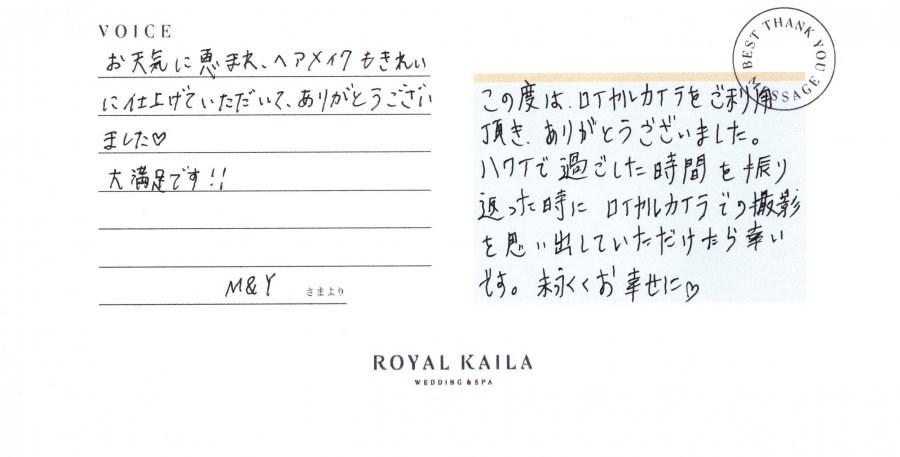 VOICE
お天気に恵まれ、ヘアメイクもきれい
に仕上げていただいて、ありがとうござい
ました♡
大満足です!!
M&Y さまより
BEST THANK YOU MESSAGE
この度は、ロイヤルカイラをご利用
頂き、ありがとうございました。
ハワイで過ごした時間を振り
返った時にロイヤルカイラでの撮影
を思い出していただけたら幸い
です。末永くお幸せに♡
ROYAL KAILA
WEDDING & SPA